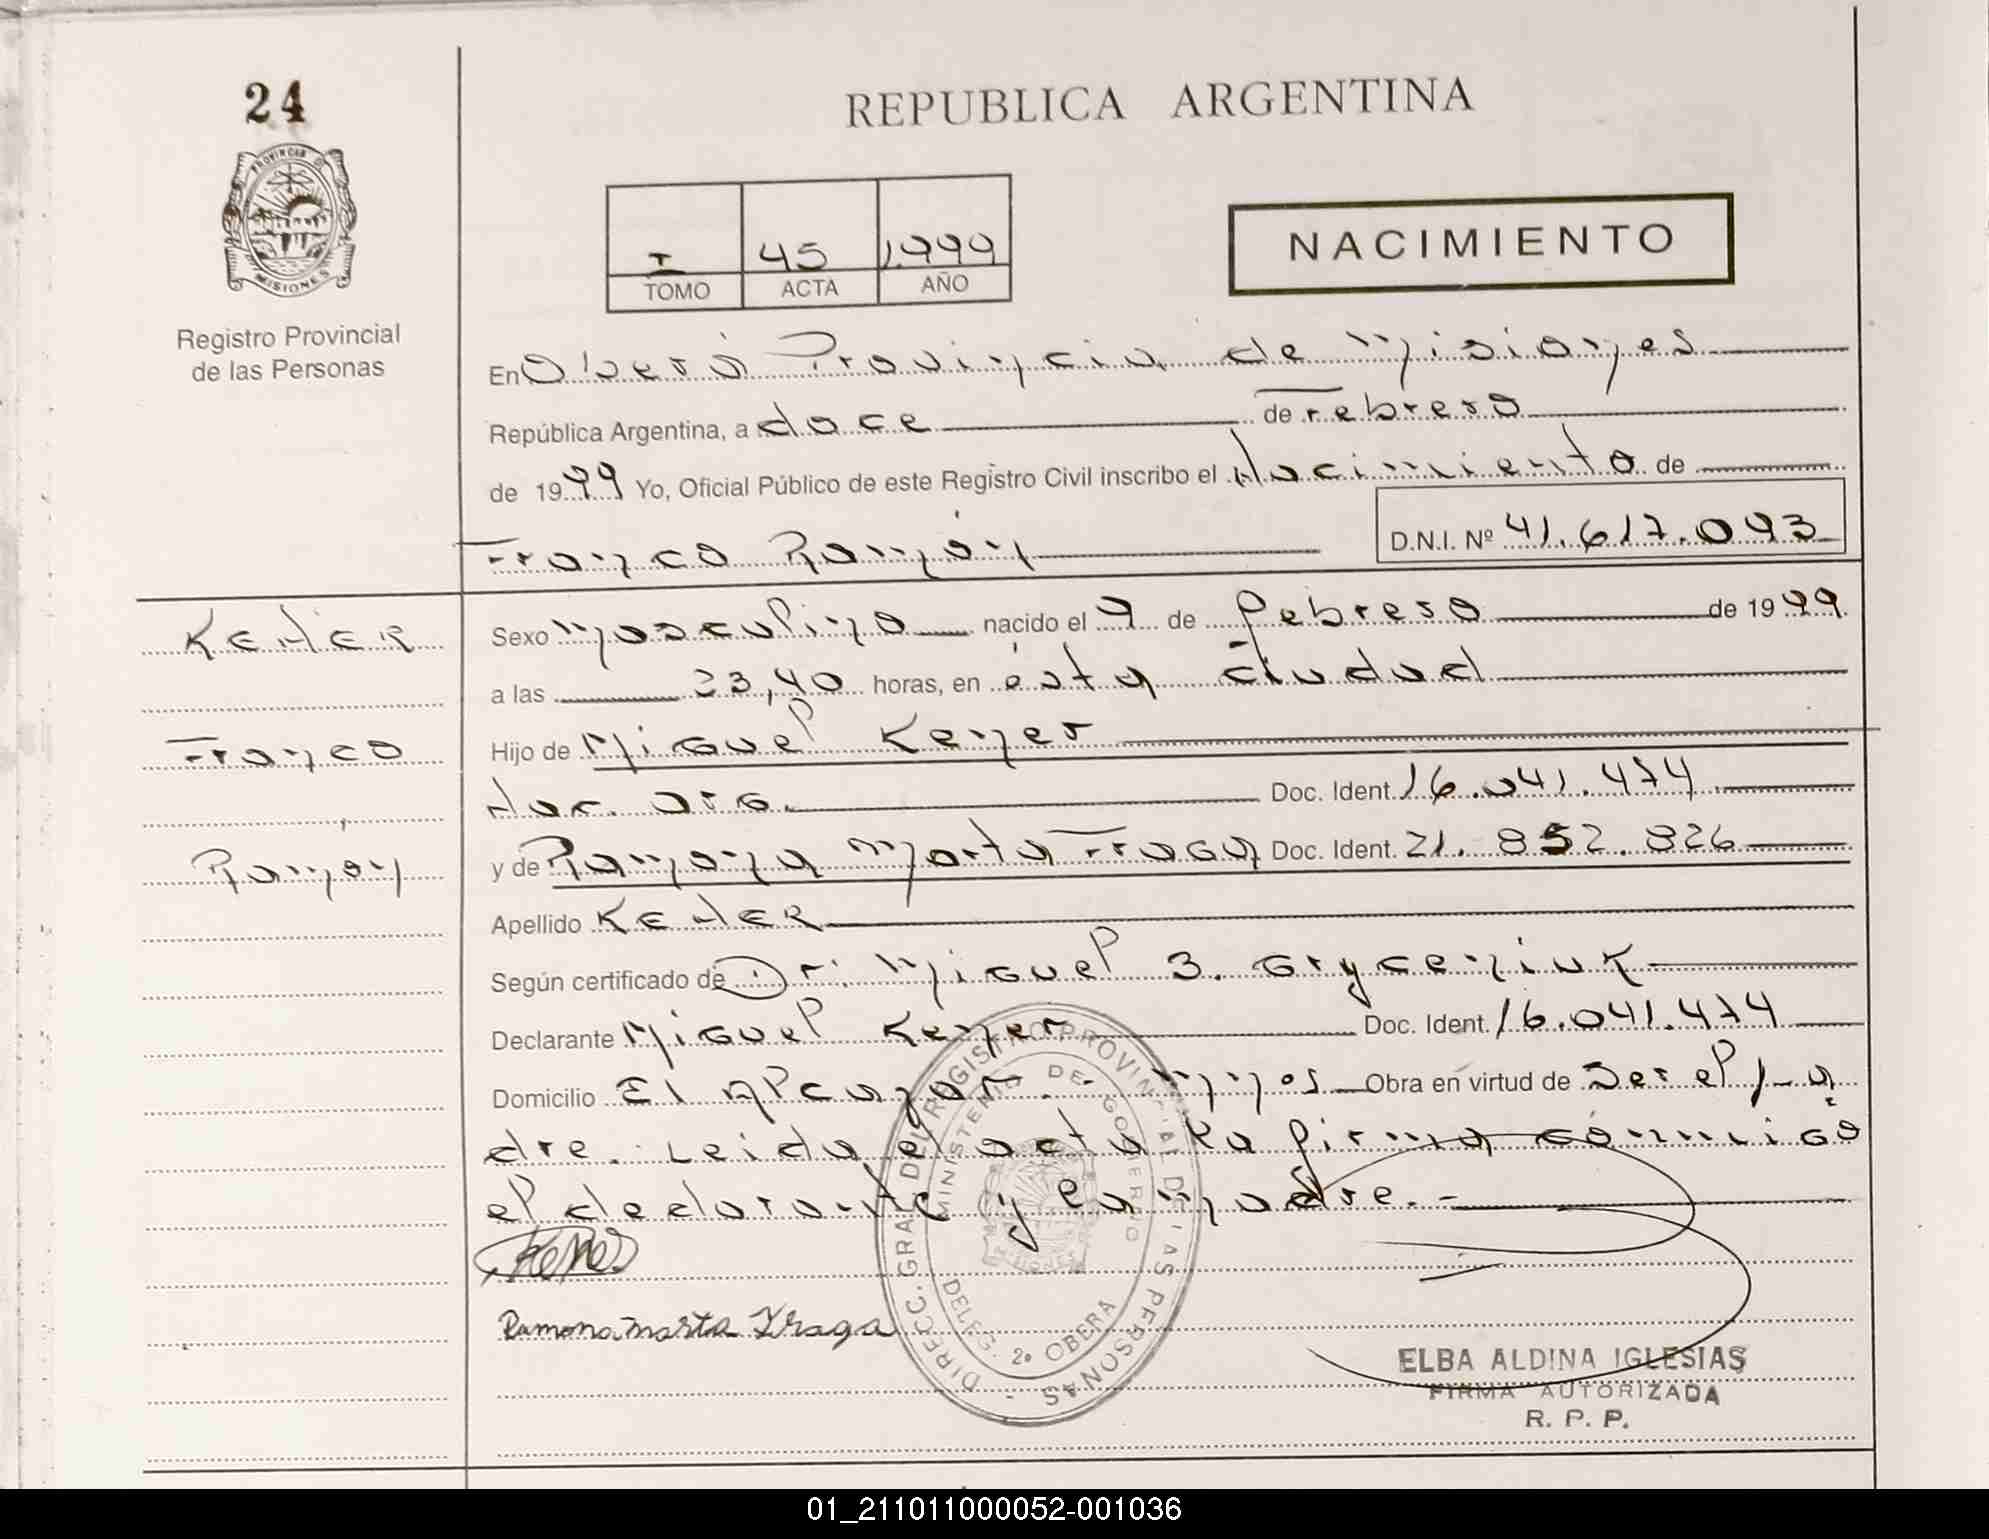 24
REPUBLICA ARGENTINA
PROVINCIA D
MISIONES
Registro Provincial
de las Personas
I 45 1.999
TOMO ACTA AÑO
NACIMIENTO
En Oberá Provincia de Misiones
República Argentina, a doce de Febrero
de 1999 Yo, Oficial Público de este Registro Civil inscribo el Nacimiento de
Franco Ramón D.N.I. Nº 41.617.093
KENER
Franco
Ramón
Sexo Masculino nacido el 9 de febrero de 1999
a las 23,40 horas, en ésta ciudad
Hijo de Miguel Kener
Nac. arg. Doc. Ident. 16.041.474
y de Ramona Marta Fraga Doc. Ident. 21.852.826
Apellido KENER
Según certificado de Dr. Miguel 3. Gryceniuk
Declarante Miguel Kener Doc. Ident. 16.041.474
Domicilio El Alcazar. Mnes Obra en virtud de Ser el pa
dre. Leida el acta la firma conmigo
el declarante y la madre.-
Kener
Ramona Marta Fraga
DIRECC. GRAL. DEL REGISTRO PROVINCIAL DE LAS PERSONAS -
MINISTERIO DE GOBIERNO
DELEG. 2º OBERA
ELBA ALDINA IGLESIAS
FIRMA AUTORIZADA
R. P. P.
01_211011000052-001036